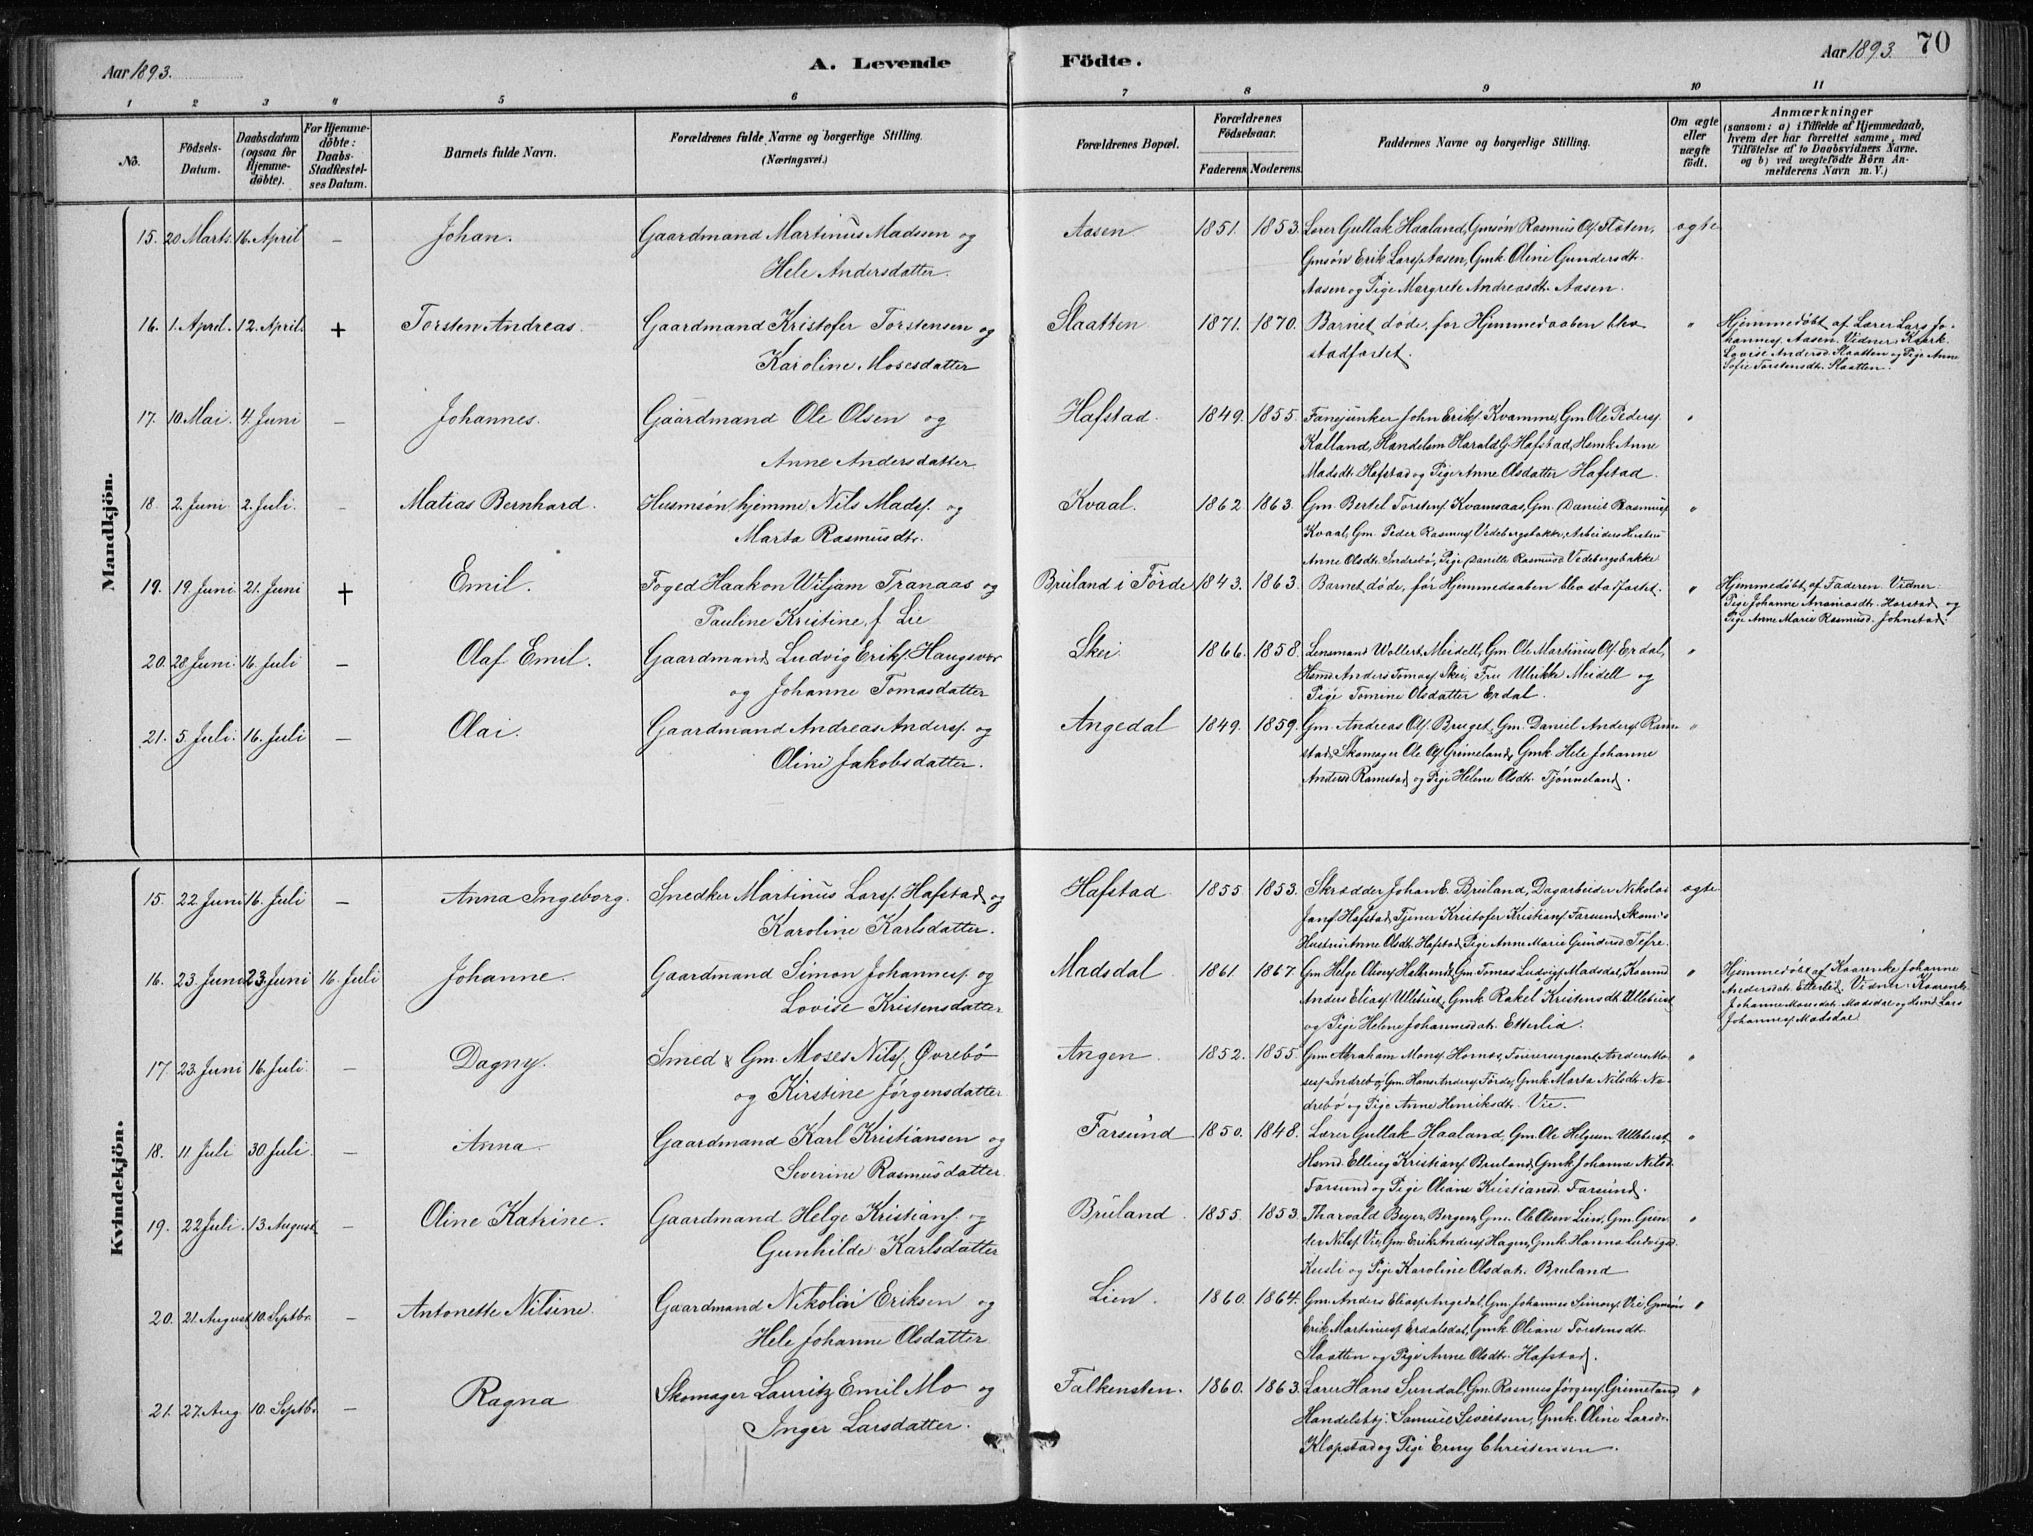 Aar 1893.
A. Levende Födte.
Aar 1893.
70
1 2 3 4 5 6 7 8 9 10 11
No.
Födsels-Datum.
Daabsdatum (ogsaa for Hjemmedöbte).
For Hjemmedöbte: Daabs-Stadfæstelses Datum.
Barnets fulde Navn.
Forældrenes fulde Navne og borgerlige Stilling.
(Næringsvei.)
Forældrenes Bopæl.
Forældrenes Födselsaar.
Faderens. Moderens.
Faddernes Navne og borgerlige Stilling.
Om ægte eller uægte födt.
Anmærkninger
(saasom: a) i Tilfælde af Hjemmedaab, hvem der har forrettet samme, med Tilföielse af to Daabsvidners Navne. og b) ved uægtefödte Börn Anmelderens Navn m. V.)
Mandkjön.
15. 20 Marts. 16. April – Johan. Gaardmand Martinus Madssen og Aasen 1851. 1853. Lærer Gullak Haaland, Gmsøn Rasmus Ols. Floten, ægte
Hele Andersdatter. Gmsøn Erik Lars. Aasen, Gmk. Oline Gundersdt.
Aasen og Pige Margrete Andreasdt. Aasen.
16. 1. April. 12. April. + Torsten Andreas. Gaardmand Kristofer Torstensen og Slaatten 1871. 1870. Barnet døde, før Hjemmedaaben blev " Hjemmedøbt af Lærer Lars Jo-
Karoline Mosesdatter stadfæstet. hannes. Aasen. Vidner:
Lovise Andersd. Slaatten og Pige Anne
Sofie Torstensdt. Slaatten.
17. 10. Mai. 4. Juni – Johannes. Gaardmand Ole Olsen og Hafstad. 1849. 1855. Fanejunker John Eriks. Kvamme, Gm. Ole Peders. "
Anne Andersdatter Kalland, Handelsm. Harald G. Hafstad, Hsmk. Anne
Madsdt. Hafstad og Pige Anne Olsdatter Hafstad.
18. 2. Juni 2. Juli. – Matias Bernhard. Husmsøn, hjemme Nils Mads. og Kvaal. 1862. 1863. Gm. Bertel Torstens. Kvamsaas, Gm. Daniel Rasmus. "
Marta Rasmusdt. Kvaal, Gm. Peder Rasmus. Vedebergsbakke, Arbeiders Hustru
Anne Olsdt. Indrebø, Pige Danielle Rasmusd. Vedebergsbakke
19. 19. Juni 21. Juni + Emil. Foged Haakon Wiljam Tranaas og Bruland i Førde 1843. 1863. Barnet døde, før Hjemmedaaben blev stadfæstet. " Hjemmedøbt af Faderen. Vidner:
Pauline Kristine, f. Lie Pige Johanne Ananiasdt. Harstad og
Pige Anne Marie Rasmusd. Johnstad.
20. 28. Juni. 16. Juli – Olaf Emil. Gaardmand Ludvig Eriks. Haugsvær Skei. 1866. 1858. Lensmand Wollert Meidell, Gm. Ole Martinus Ols. Erdal, "
og Johanne Tomasdatter Hsmd. Anders Tomas. Skei, Fru Ulrikke Meidell og
Pige Tomine Olsdatter Erdal.
21. 5. Juli. 16. Juli – Olai. Gaardmand Andreas Anders. og Angedal 1849. 1859. Gm. Andreas Ols. Bruget, Gm. Daniel Anders. Ram- "
Oline Jakobsdatter. stad, Skomager Ole Ols. Grimeland, Gmk. Hele Johanne
Andersd. Ramstad og Pige Helene Olsdt. Tjønneland.
Kvindekjön.
15. 22 Juni 16. Juli – Anna Ingeborg. Snedker Martinus Lars. Hafstad og Hafstad 1855. 1853. Skrædder Johan E. Bruland, Dagarbeider Nikolai ægte
Karoline Karlsdatter. Jans. Hafstad, Tjener Kristofer Kristians. Farsund, Skom.s
Hustru Anne Olsdt. Hafstad, Pige Anne Marie Gundersd. Tefre.
16. 23 Juni 23 Juni 16. Juli Johanne. Gaardmand Simon Johannes. og Madsdal 1861. 1867. Gm. Helge Olions. Halbrendt, Gm. Tomas Ludvigs. Madsdal, " Hjemmedøbt af Johanne
Lovise Kristensdatter Anders Elias. Ullebust, Gmk. Rakel Kristensdt. Ullebust Andersdt. Etterlid. Vidner:
og Pige Helene Johannesdt. Etterlid. Johanne Mosesdt. Madsdal og Lars
Johannes. Madsdal
17. 23. Juni 16. Juli – Dagny. Smed & Gm. Moses Nils. Øvrebø Angen. 1852. 1855. Gm. Abraham Mons. Hornes, Anders Mo- "
og Kirstine Jørgensdatter ses. Indrebø, Gm. Hans Anders. Førde, Gmk. Marta Nilsdt. In-
drebø og Pige Anne Henriksdt. Vie.
18. 11. Juli 30. Juli. – Anna. Gaardmand Karl Kristiansen og Farsund 1850. 1848. Lærer Gullak Haaland, Gm. Ole Helgesen Ullebust, "
Severine Rasmusdatter Hsmd. Elling Kristians. Bruland, Gmk. Johanne Nilsd.
Farsund og Pige Oliane Kristiansd. Farsund.
19. 22 Juli. 13 August – Oline Katrine. Gaardmand Helge Kristians. og Bruland. 1855. 1853. Tharvald Beyer, Bergen, Gm. Ole Olsen Lien, Gm. Gun- "
Gunhilde Karlsdatter der Nils. Vie, Gm. Erik Anders. Hagen, Gmk. Hanna Ludvigsd.
Kusli og Pige Karoline Olsdat. Bruland
20. 21. August 10. Septbr. – Antonette Nilsine. Gaardmand Nikolai Eriksen og Lien. 1860. 1864. Gm. Anders Elias. Angedal, Gm. Johannes Simons. Vie, Gmsøn "
Hele Johanne Olsdatter Erik Martinus. Erdalsdal, Gmk. Oliane Torstensdt.
Slaatten og Pige Anne Olsdt. Hafstad.
21. 27. Aug. 10. Septbr. – Ragna Skomager Lauritz Emil Mo og Falkensten. 1860. 1863. Lærer Hans Sundal, Gm. Rasmus Jørgens. Grimeland "
Inger Larsdatter. Handelsbtj. Samuel Sivertsen, Gmk. Oline Larsd.
Klopstad og Pige Erny Christensen.